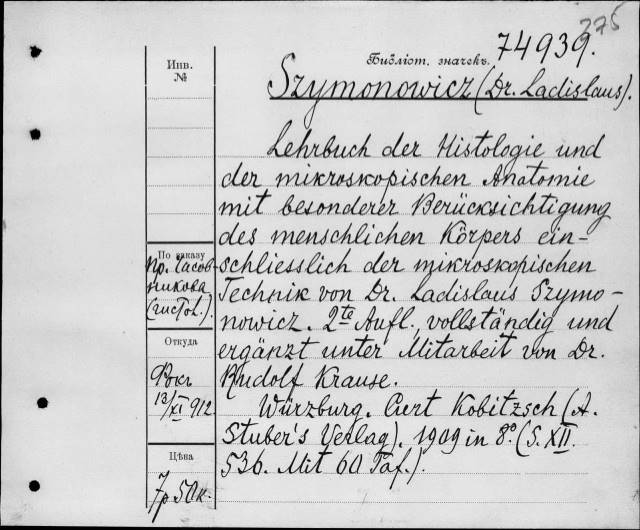 375
Библіот. значекъ. 74939.
Szymonowicz (Dr. Ladislaus).
Инв.
№
Lehrbuch der Histologie und
der mikroskopischen Anatomie
mit besonderer Berücksichtigung
des menschlichen Körpers ein-
schliesslich der mikroskopischen
Technik von Dr. Ladislaus Szymo-
nowicz. 2te Aufl., vollständig und
ergänzt unter Mitarbeit von Dr.
Rudolf Krause.
Würzburg. Curt Kobitzsch (A.
Stuber's Verlag). 1909 in 8° (S. XII.
536. Mit 60 Taf.).
По заказу
пр. Часов-
никова
(гистол.).
Откуда
Фокъ
13/XI 912.
Цѣна
7р 50к.